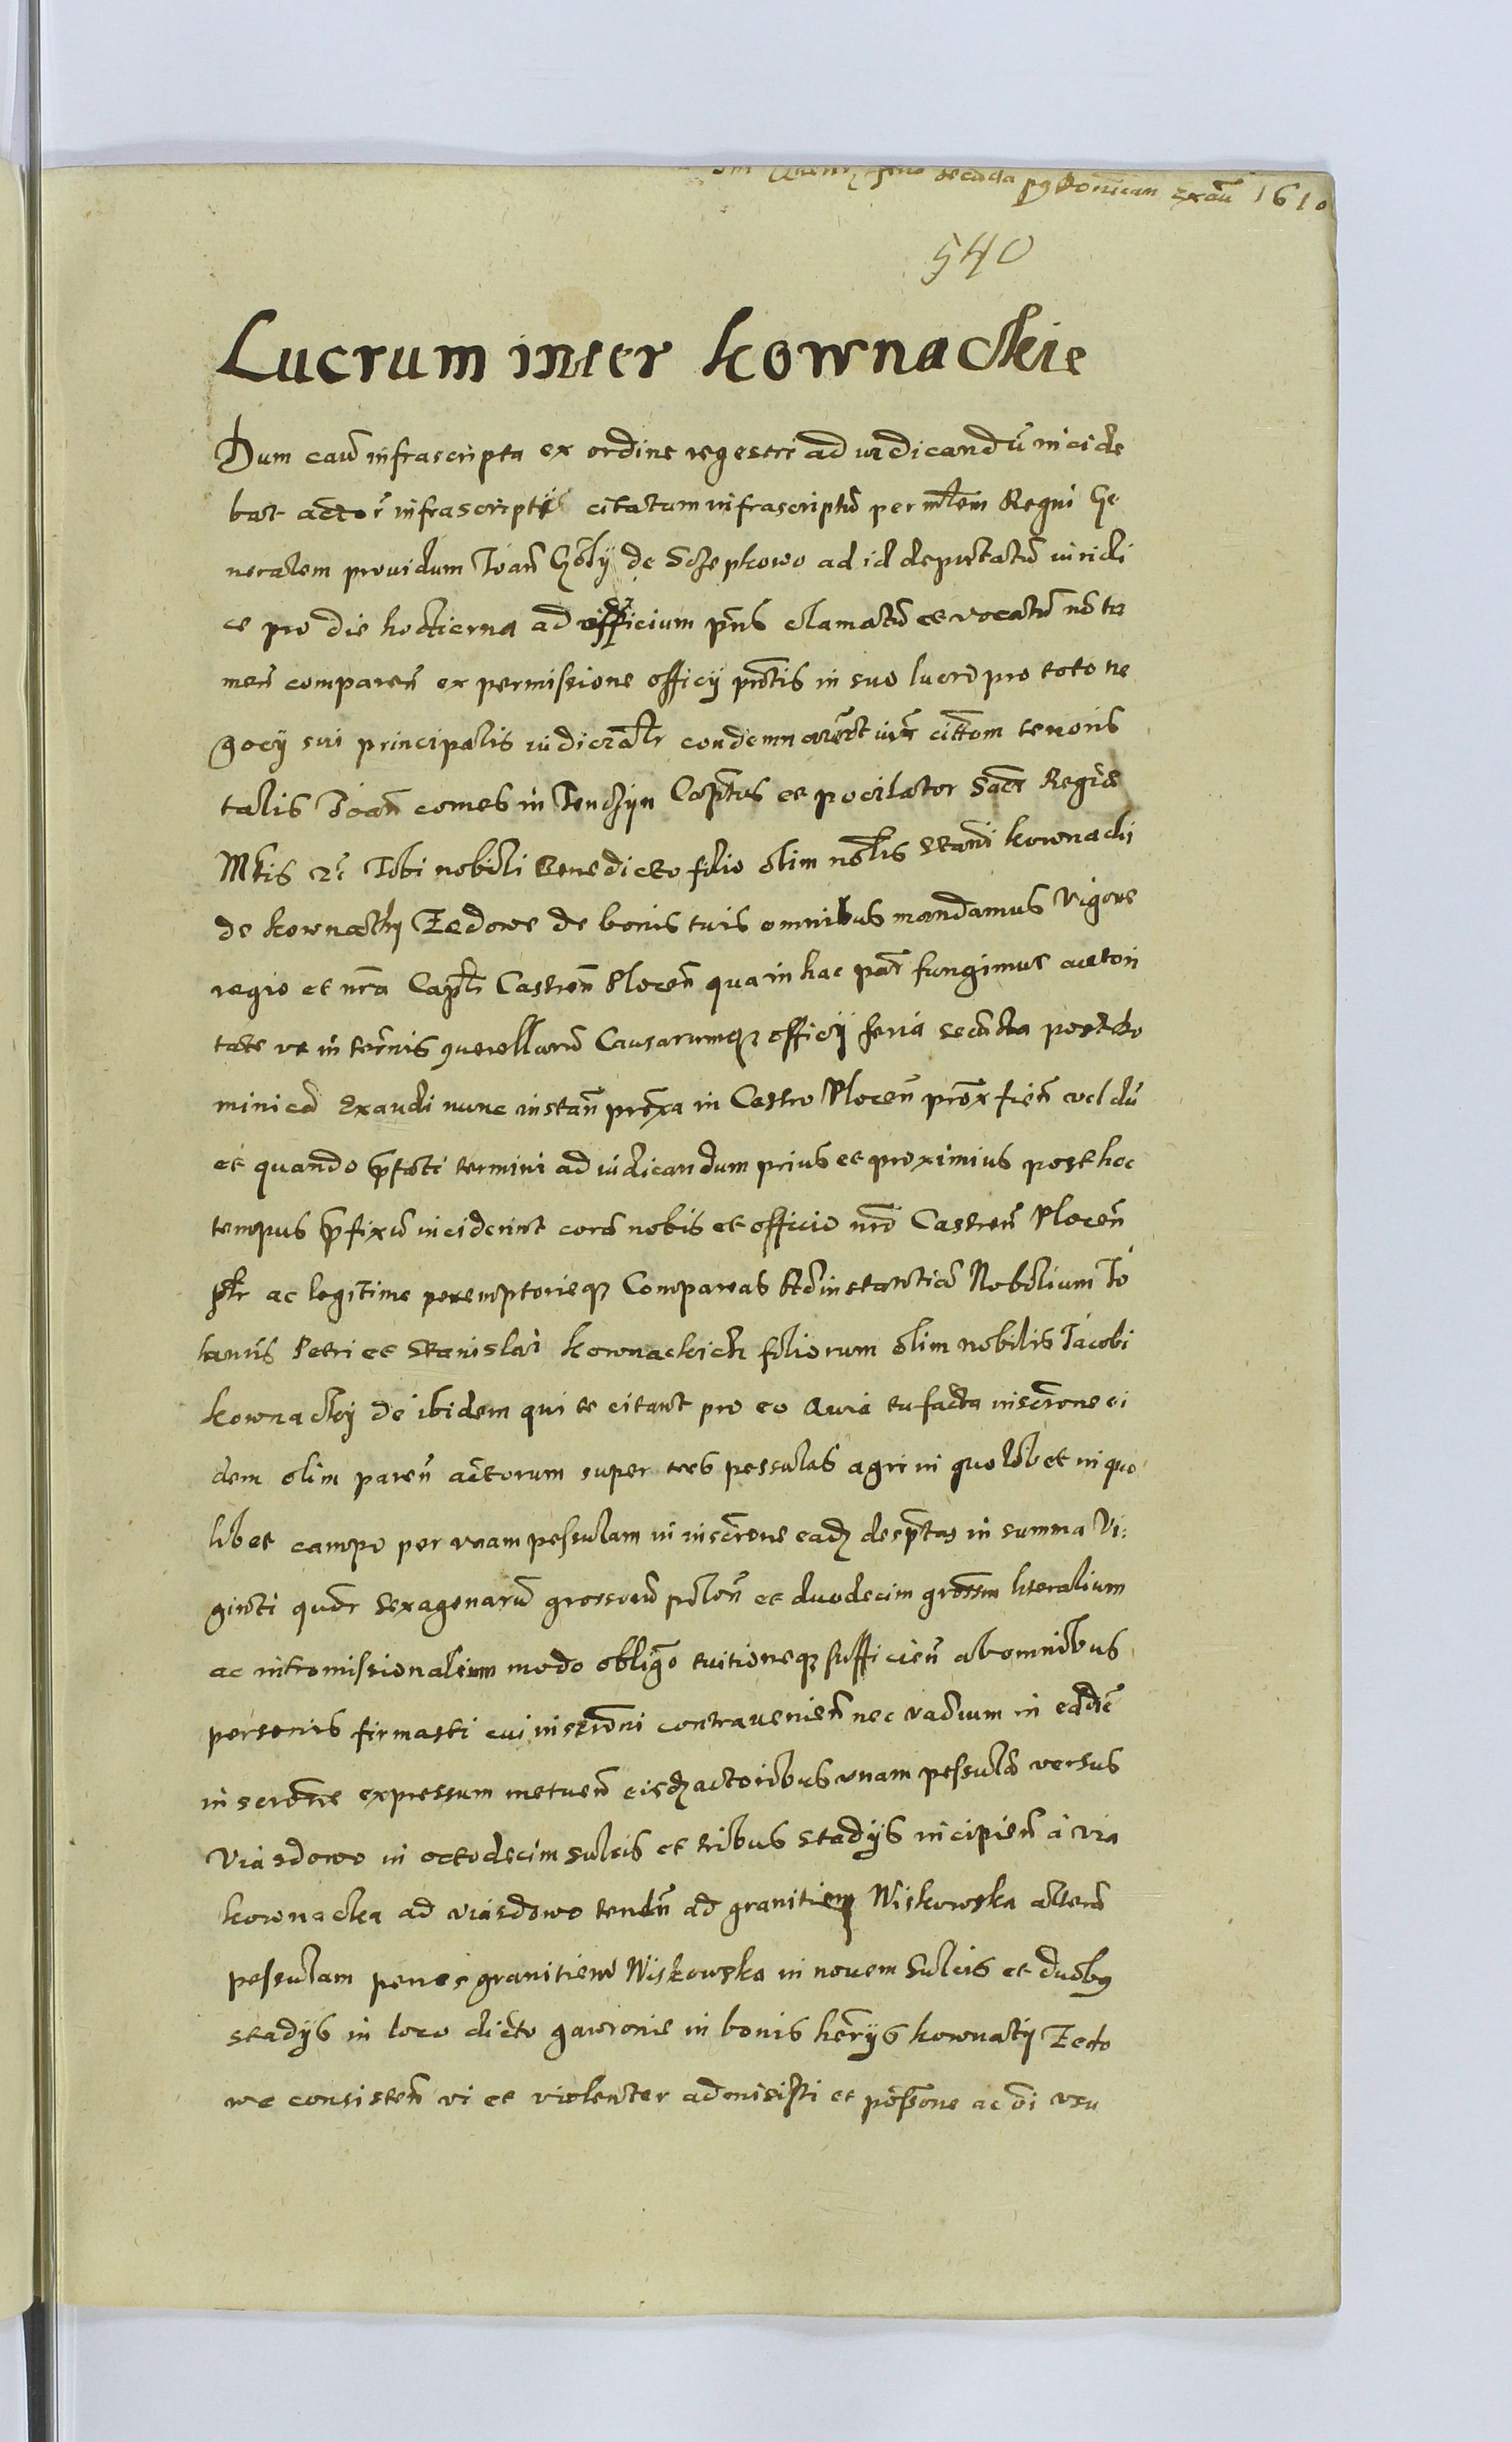 feria secunda pꝰ Dominicam Exaũ 1610
540
Lucrum inter Kownackie
Dum cauã infrascripta ex ordine regestri ad iudicandũ incide
bat actor infrascripti citatum infrascriptũ per mltẽm Regni Ge
neralem prouidum Ioañ Goly de Szczepkowo ad id deputatũ iuridi
ce pro die hodierna ad officium pñs clamatũ et vocatũ nõ ta
meñ compareñ ex permissione officij pñtis in suo lucro pro toto ne
gocij sui principalis iudicialr condemnauerũt iux̃ cittõm tenoris
talis Ioañ comes in Tenczyn Capitãs et pocilator Sacr Regiæ
Mtis &c Tibi nobili Benedicto filio olim nobilis Stani Kownacki
de Kownathy Zedowe de bonis tuis omnibus mandamus vigore
regio et nrã Capitlr Castreñ Ploceñ qua in hac par̃ fungimur autori
tate vt in termis querellarũ Causarumqꝫ officij feria secunda post do
minicã Exaudi nunc instañ proxa in Castro Ploceñ prox fieñ vel dũ
et quando p̃fati termini ad iudicandum prius et proximius post hoc
tempus p̃fixũ inciderint corã nobis et officio nrõ Castreñ Ploceñ
plr ac legitime peremptorieqꝫ Compareas ad instantiã Nobilium Io
hannis Petri et Stanislai Kownackich filiorum olim nobilis Iacobi
Kownacky de ibidem qui te citant pro eo quia tu facta inscrõne ei
dem olim pareñ actorum super tres pessulas agri in quolibet in quo
libet campo per vnam pessulam in inscrõne eadꝫ desp̃tas in summa Vi:
ginti quor̃ sexagenarũ grossorũ poloñ et duodecim grossm literalium
ac intromissionalium modo obligõ tuitioneqꝫ sufficieñ ab omnibus
personis firmasti cui inscrõni contraueniẽn nec vadium in eadẽ
inscrõne expressum metueñ eisdꝫ actoribus vnam pessulã versus
Viasdowo in octodecim sulcis et tribus stadijs incipieñ a via
Kownacka ad Viasdowo tendeñ ad granitiem Wiskowska alterã
pessulam penes granitiem Wiskowska in nouem sulcis et duobꝰ
stadijs in loco dicto gawronie in bonis herijs Kownaty Zedo
we consisteñ vi et violenter admisisti et possõne ac õi vsu